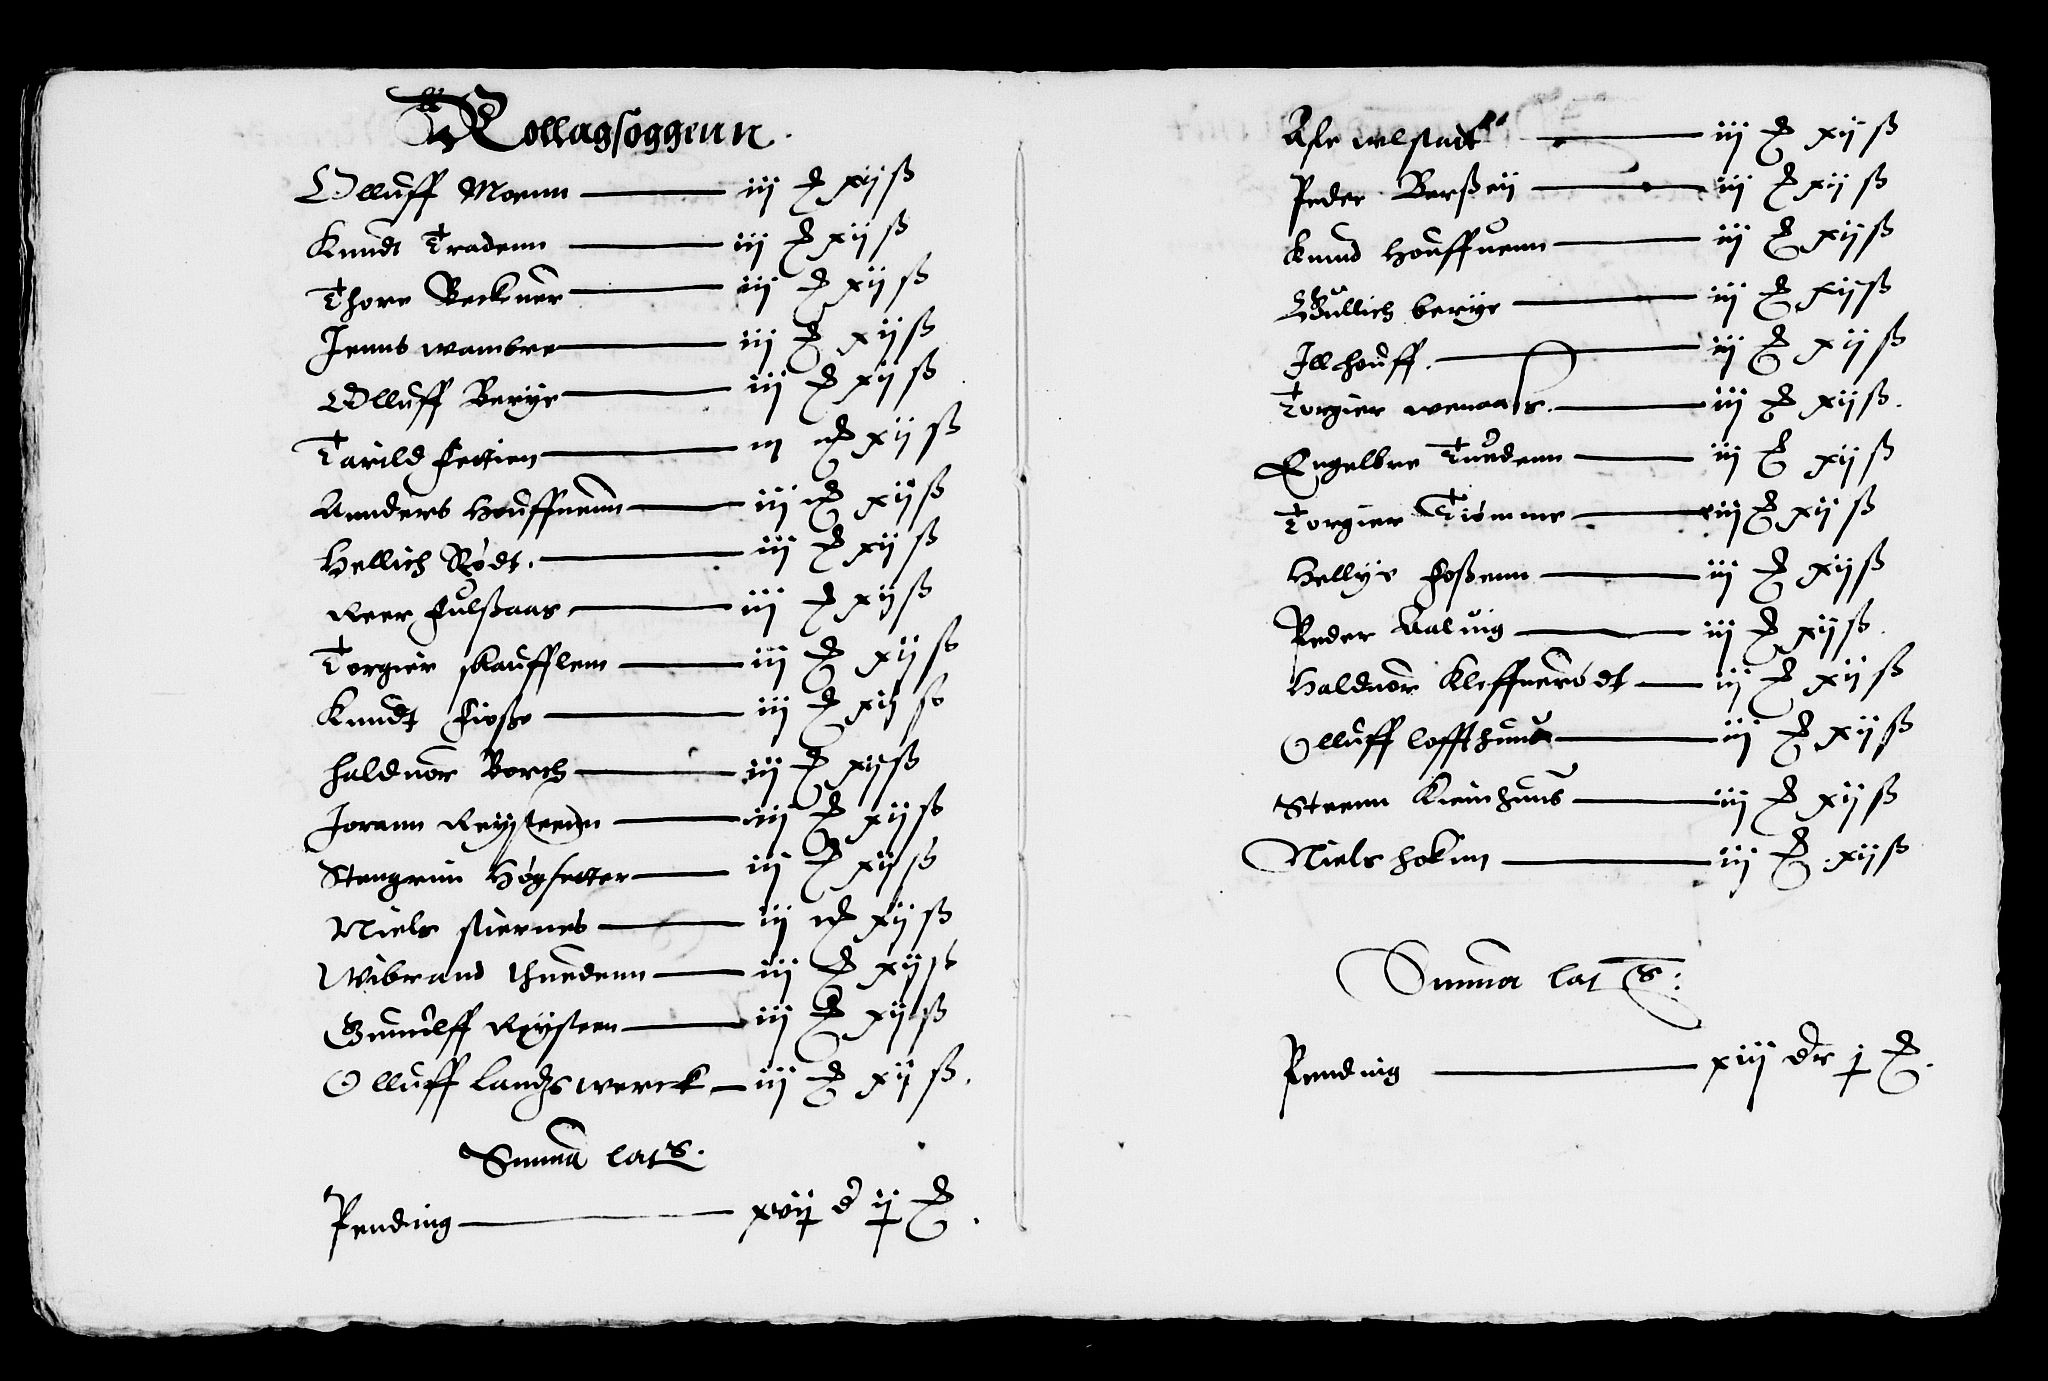 Rollagsoggenn.
Olluff Moenn — iij ₰ xij ß
Knudt Tradenn — iij ₰ xij ß
Thore Beckner — iij ₰ xij ß
Jenns wambre — iij ₰ xij ß
Olluff Berge — iij ₰ xij ß
Tarild — iij ₰ xij ß
Annders Houffnenn — iij ₰ xij ß
Hellich Rødt. — iij ₰ xij ß
Reer Fulßaas — iij ₰ xij ß
Torgier skaufflem — iij ₰ xij ß
Knudt Fioße — iij ₰ xij ß
Haldnor Borch — iij ₰ xij ß
Jorann Reijsteenn — iij ₰ xij ß
Stengrim Høgsetter — iij ₰ xij ß
Niels stiernes — iij ₰ xij ß
Wibrand thuedenn — iij ₰ xij ß
Gunulff Reijsteen — iij ₰ xij ß
Olluff Landzwerck — iij ₰ xij ß.
Summa lats.
Pending — xvij dr ij ₰.
Asle — iij ₰ xij ß
Peder — iij ₰ xij ß
Knud Houffuenn — iij ₰ xij ß
Gullich berge — iij ₰ xij ß
Jllhouff. — iij ₰ xij ß
Torgier wenaas. — iij ₰ xij ß.
Engelbre Tuedenn — iij ₰ xij ß
Torgier Tiømme — iij ₰ xij ß
Hellge Foßenn — iij ₰ xij ß
Peder Aaluig — iij ₰ xij ß.
Haldnor Kleffnerødt — iij ₰ xij ß
Olluff loffthuus — iij ₰ xij ß
Steenn Keinhuus — iij ₰ xij ß
Niels hokenn — iij ₰ xij ß
Summa lat s:
Pending — xiij dr j ₰.